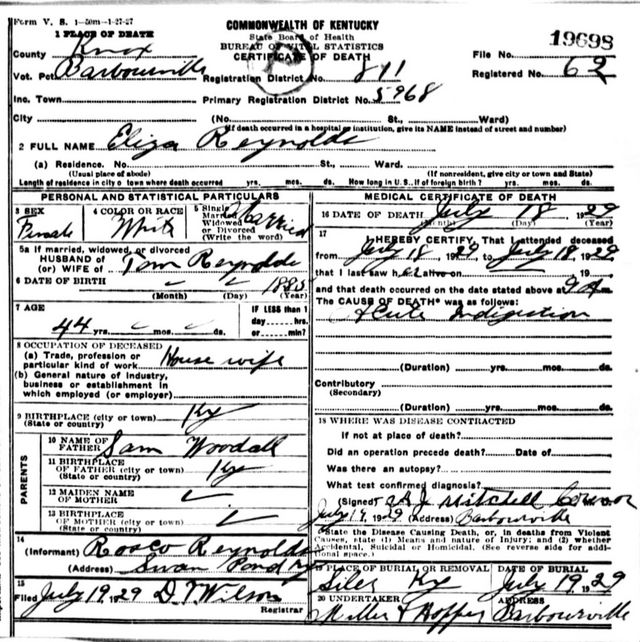 Form V. S. 1-50m-1-27-27
COMMONWEALTH OF KENTUCKY
State Board of Health
BUREAU OF VITAL STATISTICS
CERTIFICATE OF DEATH
1 PLACE OF DEATH
County Knox
Vot. Pct Barbourville
Registration District No. 811
File No. 19698
Registered No. 62
Inc. Town
Primary Registration District No. 5968
City (No. St., Ward)
(If death occurred in a hospital or institution, give its NAME instead of street and number)
2 FULL NAME Eliza Reynolds
(a) Residence. No. St., Ward.
(Usual place of abode) (If nonresident, give city or town and State)
Length of residence in city or town where death occurred yrs. mos. ds. How long in U.S., if of foreign birth? yrs. mos. ds.
PERSONAL AND STATISTICAL PARTICULARS
3 SEX
Female
4 COLOR OR RACE
White
5 Single
Married
Widowed
or Divorced
(Write the word)
Married
5a If married, widowed, or divorced
HUSBAND of
(or) WIFE of Tom Reynolds
6 DATE OF BIRTH 1885
(Month) (Day) (Year)
7 AGE
44 yrs. mos. ds.
IF LESS than 1
day hrs.
or min.?
8 OCCUPATION OF DECEASED
(a) Trade, profession or
particular kind of work House wife
(b) General nature of industry,
business or establishment in
which employed (or employer)
9 BIRTHPLACE (city or town) Ky
(State or country)
PARENTS
10 NAME OF
FATHER Sam Woodall
11 BIRTHPLACE
OF FATHER (city or town) Ky
(State or country)
12 MAIDEN NAME
OF MOTHER
13 BIRTHPLACE
OF MOTHER (city or town)
(State or country)
14
(Informant) Rosco Reynolds
(Address) Swan Pond Ky
15
Filed July 19 1929 D. T. Wilson
Registrar
MEDICAL CERTIFICATE OF DEATH
16 DATE OF DEATH July 18 1929
(Month) (Day) (Year)
17
I HEREBY CERTIFY, That I attended deceased
from July 18 1929 to July 18, 1929
that I last saw h alive on 19
and that death occurred on the date stated above at 9 m.
The CAUSE OF DEATH* was as follows:
Acute Indigestion
(Duration) yrs. mos. ds.
Contributory
(Secondary)
(Duration) yrs. mos. ds.
18 WHERE WAS DISEASE CONTRACTED
If not at place of death?
Did an operation precede death? Date of
Was there an autopsy?
What test confirmed diagnosis?
(Signed) Mitchell Coroner
July 19 1929 (Address) Barbourville
*State the Disease Causing Death, or, in deaths from Violent
Causes, state (1) Means and nature of Injury; and (2) whether
Accidental, Suicidal or Homicidal. (See reverse side for addi-
tional space.)
19 PLACE OF BURIAL OR REMOVAL
Siler Ky
DATE OF BURIAL
July 19 1929
20 UNDERTAKER
Miller & Hopper
ADDRESS
Barbourville